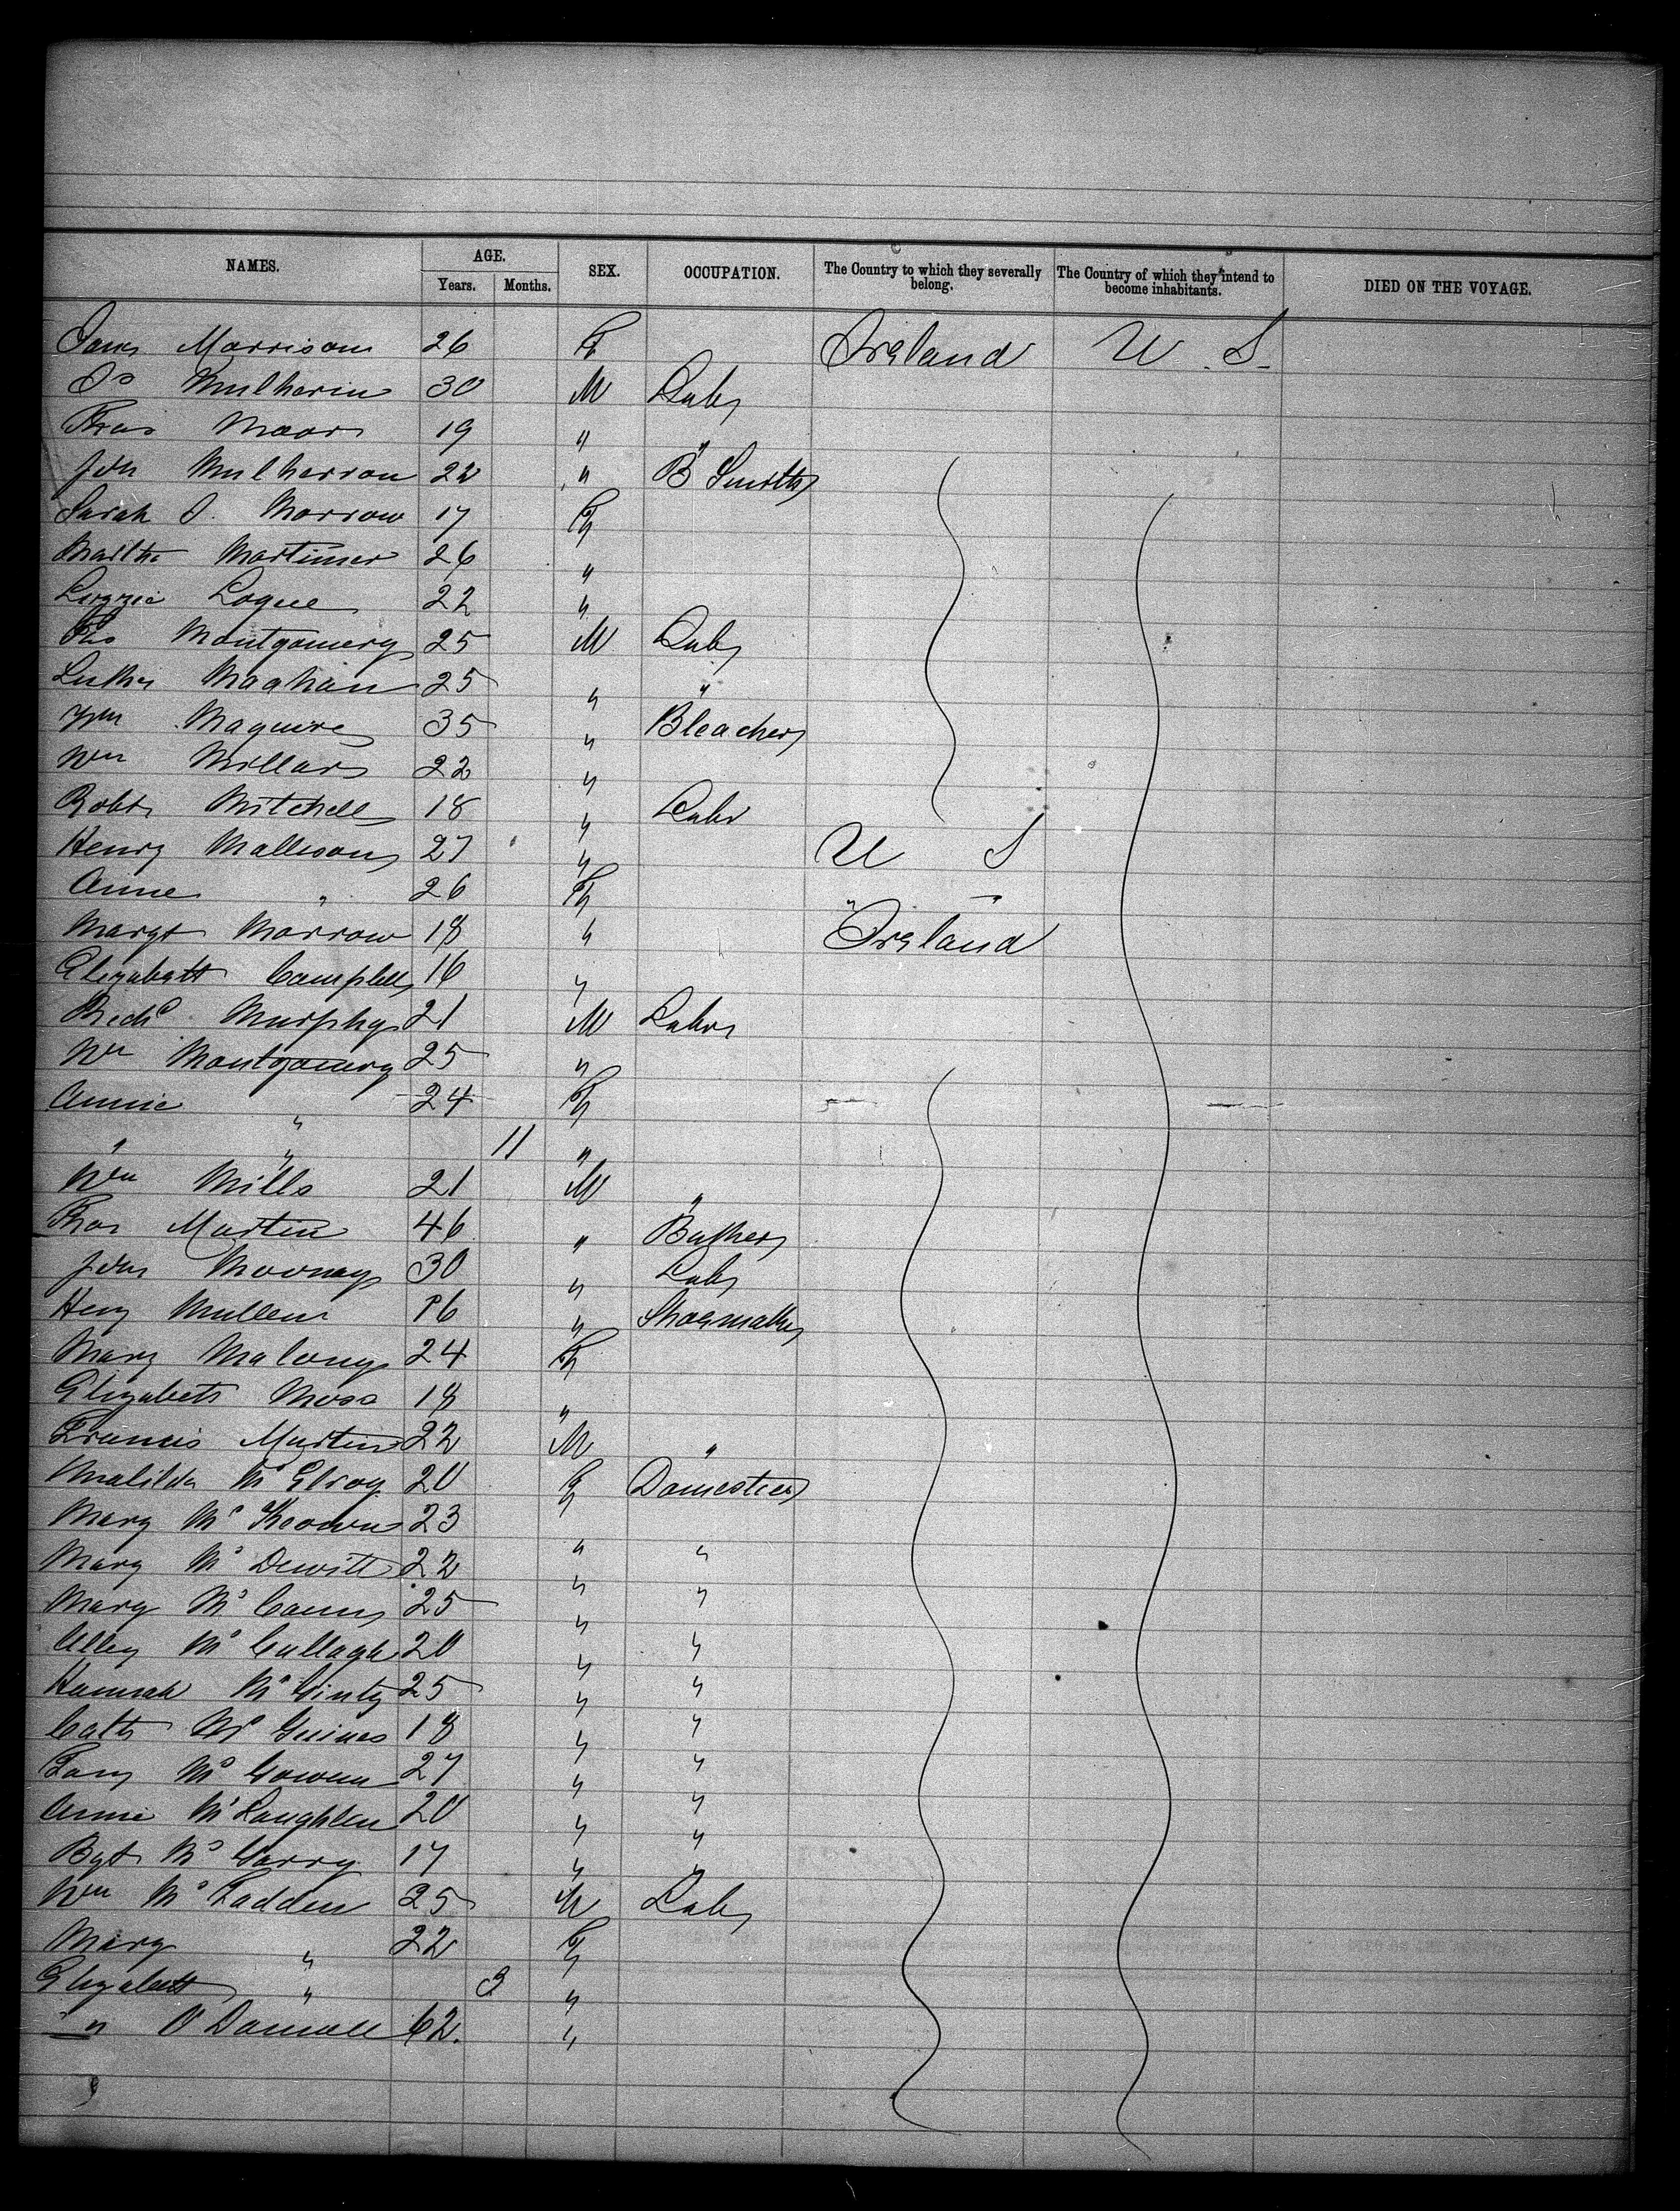 NAMES. AGE. Years. Months. SEX. OCCUPATION. The Country to which they severally belong. The Country of which they intend to become inhabitants. DIED ON THE VOYAGE.
Morrison 26 F Ireland U. S.
Mulherin 30 M Labr
Thos Moor 19 " "
Jon Mulherron 22 " B Smith
Sarah J. Morrow 17 F
Martha Mortimer 26 "
Lizzie Logue 22 "
Montgomery 25 M Labr
Luther Maghan 25 " "
Wm Maguire 35 " Bleacher
Wm Millar 22 "
Robt Mitchell 18 " Labr
Henry Mallison 27 " U S
Anne " 26 F "
Margt Morrow 18 " Ireland
Elizabeth Campbell 16 "
Richd Murphy 21 M Labr
Wm Montgomery 25 "
Annie " 24 F
" " 11 "
Wm Mills 21 M "
Thos Martin 46 "
Jon Mooney 30 " Labr
Heny Mullen 16 " Shoemaker
Mary Malony 24 F
Elizabeth Moss 18 "
Francis Martin 22 M "
Matilda McElroy 20 F Domestic
Mary McKeown 23 " "
Mary McDewitt 22 " "
Mary McCann 25 " "
Alley McCullagh 20 " "
Hannah McGinty 25 " "
Cath McGuines 18 " "
McGowan 27 " "
Annie McLaughlen 20 " "
Bgt McGarry 17 " "
Wm McFadden 25 M Labr
Mary " 22 F
Elizabeth " 3 "
" O Donnell 62. "